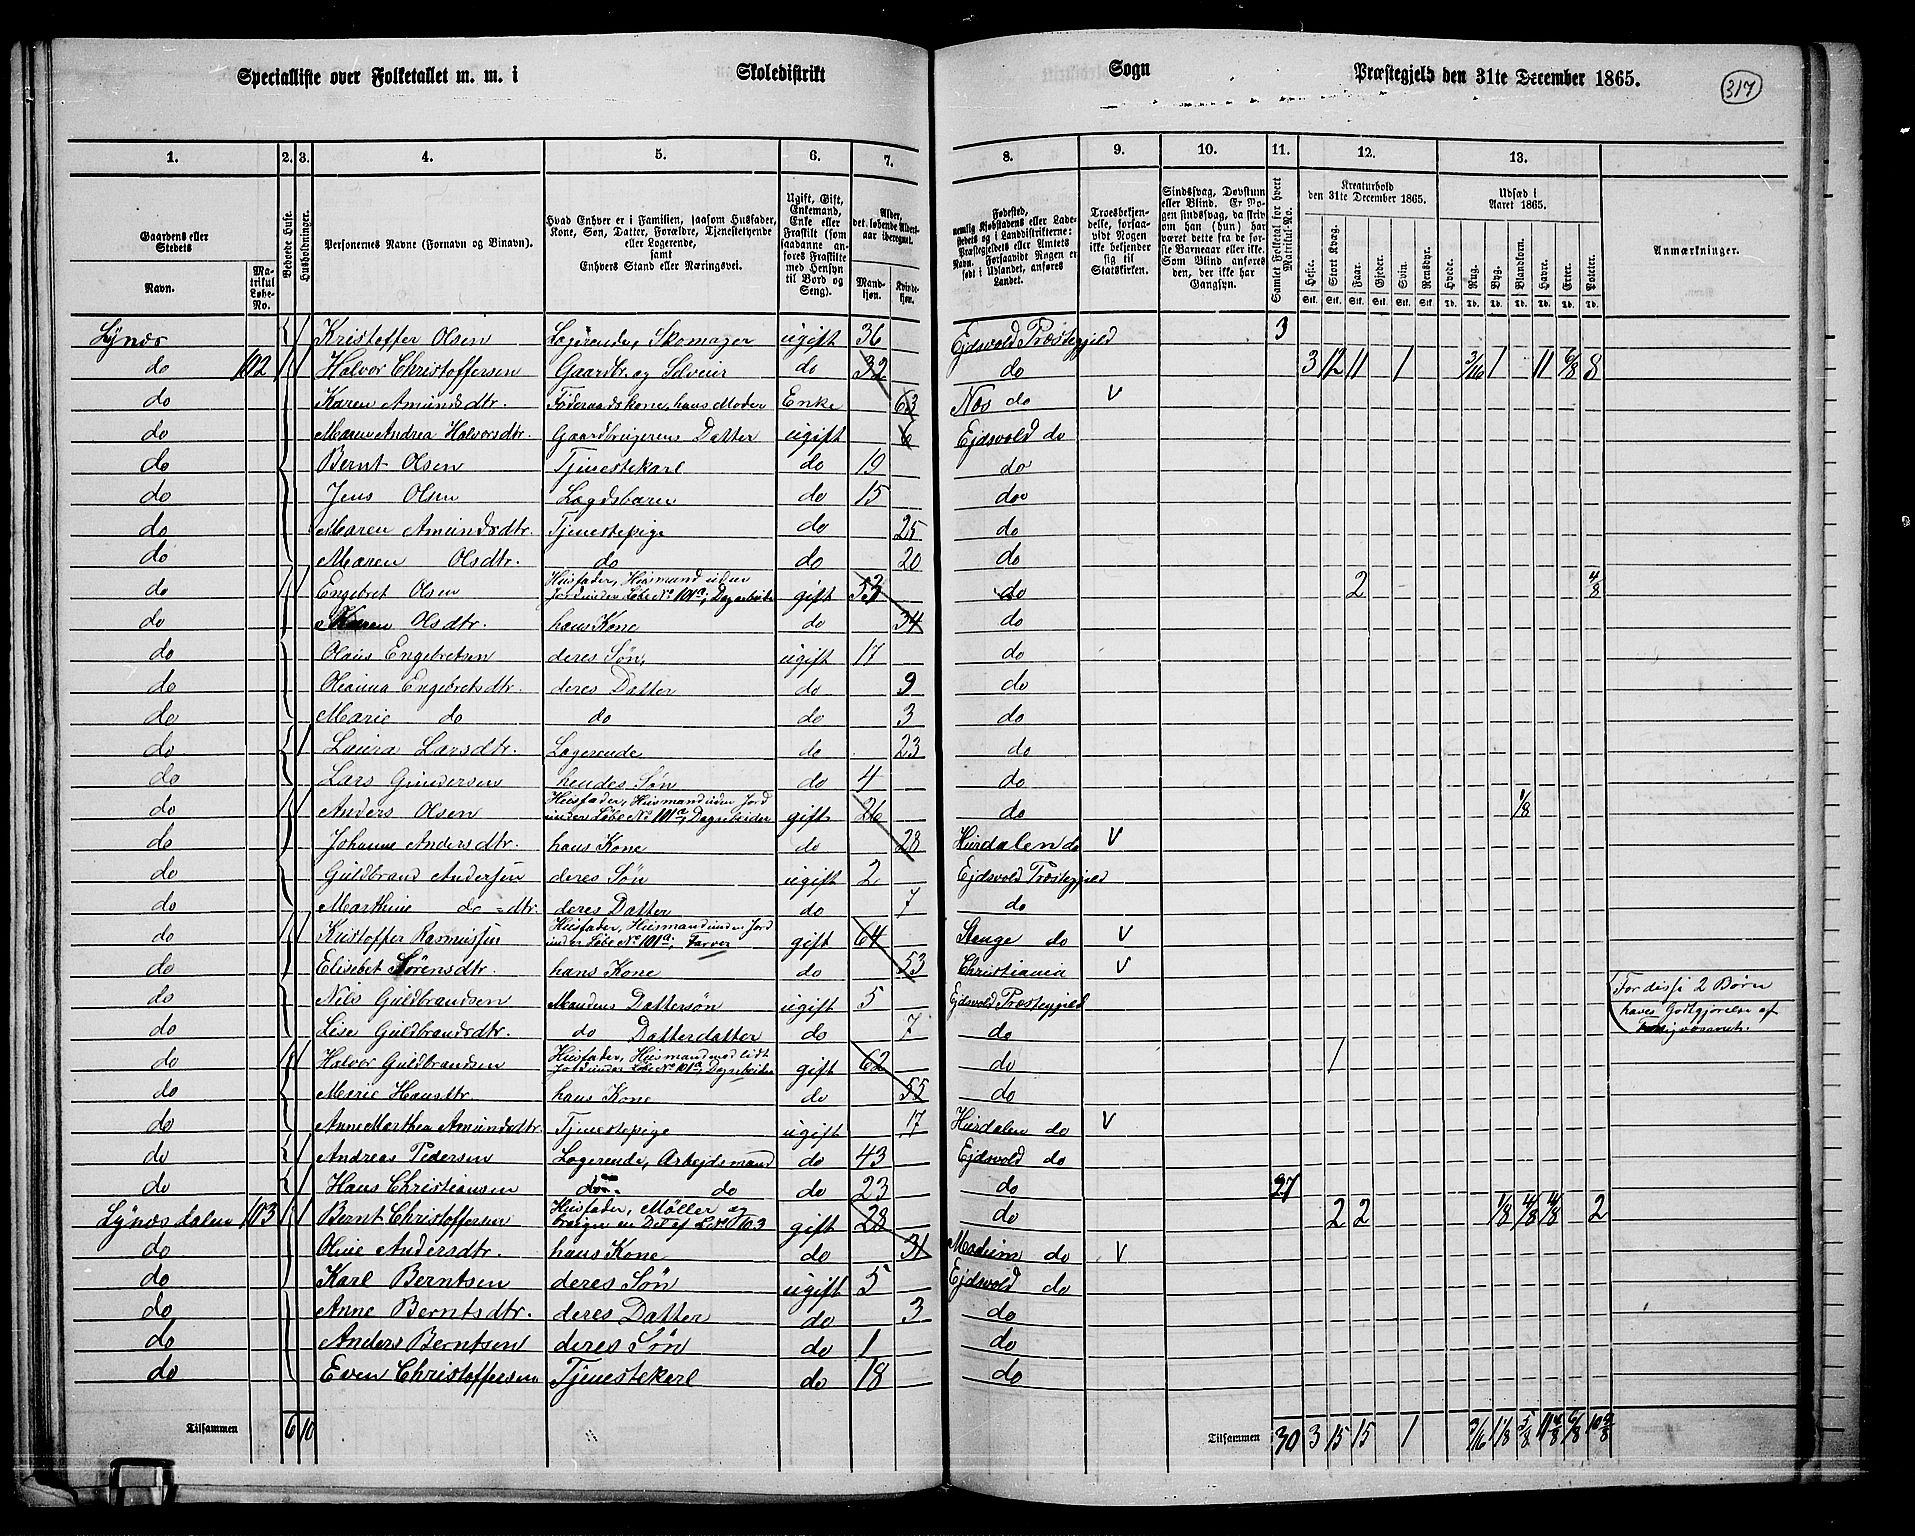 Specialliste over Folketallet m. m. i Skoledistrikt Sogn Præstegjeld den 31te December 1865. 317
1. 2. 3. 4. 5. 6. 7. 8. 9. 10. 11. 12. 13.
Gaardens eller Stedets Navn. Matrikul Løbe-No. Beboede Huse. Husholdninger. Personernes Navne (Fornavn og Binavn). Hvad Enhver er i Familien, saasom Husfader, Kone, Søn, Datter, Forældre, Tjenestetyende eller Logerende, samt Enhvers Stand eller Næringsvei. Ugift, Gift, Enkemand, Enke eller Fraskilt (som saadanne anføres Fraskilte med Hensyn til Bord og Seng). Alder, det løbende Aldersaar iberegnet. Mandkjøn. Kvindekjøn. Fødested, nemlig Kjøbstadens eller Ladestedets og i Landdistrikterne: Præstegjeldets eller Amtets Navn. Forsaavidt Nogen er født i Udlandet, anføres Landet. Troesbekjendelse, forsaavidt Nogen ikke bekjender sig til Statskirken. Sindssvag, Døvstum eller Blind. Er Nogen sindssvag, da skrives om han (hun) har været dette fra de første Barneaar eller ikke. Som Blind anføres den, der ikke har Gangsyn. Samlet Folketal for hvert Matrikul-No. Kreaturhold den 31te December 1865. Heste. Stort Kvæg. Faar. Gjeder. Svin. Rensdyr. Udsæd i Aaret 1865. Hvede. Rug. Byg. Blandkorn. Havre. Erter. Poteter. Anmærkninger.
Lynæs 1 Kristoffer Olsen Logerende, Skomager ugift 36 Ejdsvold Præstegjeld 3
do 102 1 1 Halvor Christoffersen Gaardbr. og Selveier do 32 do 3 12 11 1 3/16 1 11 6/8 8
do Karen Amundsdtr. Føderaadskone, hans Moder Enke 63 Næs do V
do Maren Andrea Halvorsdtr. Gaardbrugerens Datter ugift 6 Ejdsvold do
do Bernt Olsen Tjenestekarl do 19 do
do Jens Olsen Lægdsbarn do 15 do
do Maren Amundsdtr. Tjenestepige do 25 do
do Maren Olsdtr. do do 20 do
do 1 1 Engebret Olsen Husfader, Husmand uden Jord under Løbe No 101a, Dagarbeider gift 53 do 2 4/8
do Karen Olsdtr. hans Kone do 34 do
do Olaus Engebretsen deres Søn, ugift 17 do
do Oleanna Engebretsdtr. deres Datter do 9 do
do Marie do do do 3 do
do 1 Laura Larsdtr. Logerende do 23 do
do Lars Gundersen hendes Søn do 4 do
do 1 1 Anders Olsen Husfader, Husmand uden Jord under Løbe No 101a, Dagarbeider gift 26 do 1/8
do Johanne Andersdtr. hans Kone do 28 Hurdalen do V
do Guldbrand Andersen deres Søn ugift 2 Ejdsvold Præstegjeld
do Marthine do=dtr. deres Datter do 7 do
do 1 1 Kristoffer Rasmussen Husfader, Husmand uden Jord under Løbe No 101a, Farver gift 64 Stange do V
do Elisebet Sørensdtr. hans Kone do 53 Christiania V
do Nils Guldbrandsen Mandens Dattersøn ugift 5 Ejdsvold Præstegjeld For disse 2 Børn
do Lise Guldbrandsdtr. do Datterdatter do 7 do haves Godtgjørelse af
do 1 1 Halvor Guldbrandsen Husfader, Husmand med lidt Jord under Løbe No 101a, Dagarbeider gift 62 do 1
do Marie Hansdtr. hans Kone do 55 do
do Anne Marthea Amundsdtr. Tjenestepige ugift 17 Hurdalen do V
do 1 Andreas Pedersen Logerende, Arbejdsmand do 43 Ejdsvold do
do 1 Hans Christiansen do do do 23 do 27
Lynæsdalen 103 1 1 Bernt Christoffersen Husfader, Møller og bruger en Del af Løbe No 103 gift 28 do 2 2 1/8 4/8 4/8 2
do Oline Andersdtr. hans Kone do 31 Modum do V
do Karl Berntsen deres Søn ugift 5 Ejdsvold do
do Anne Berntsdtr. deres Datter do 3 do
do Anders Berntsen deres Søn do 1 do
do Even Christoffersen Tjenestekarl do 18 do
Tilsammen 6 10 Tilsammen 30 3 15 15 1 3/16 1 1/8 5/8 11 4/8 6/8 10 4/8